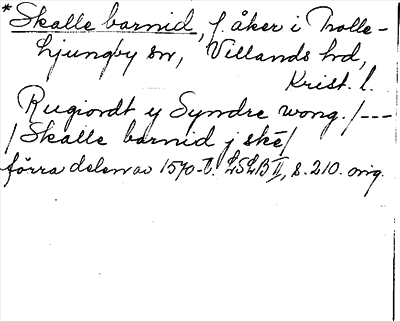 * Skalle barnid, f. åker i Trolle-
Ljungby sn, Villands hd,
Krist. l.
Rugiordt y Syndre wong. /---
/ Skalle barnid j skē /
förra delen av 1570-t. LSLB II, s. 210. orig.